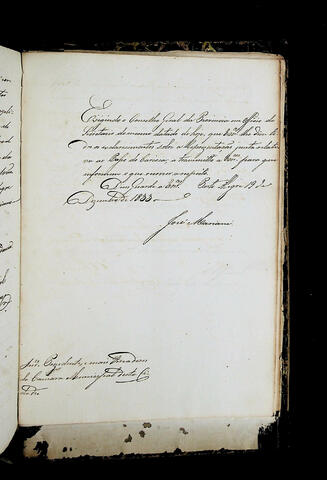 Exigindo o Conselho Geral da Provincia em Officio do
Secretario do mesmo datado de hoje, que
esclarecimentos sobre a Representação junta relativa
ao a transmitto a V.Mces para que
informem o que occorrer a respeito.
Deos Guarde a V.Mces Porto Alegre 19 de
Dezembro de 1833.
José Mariani
Snrs. Prezidente, e mais Vereadores
da Camara Municipal desta Ci
dade